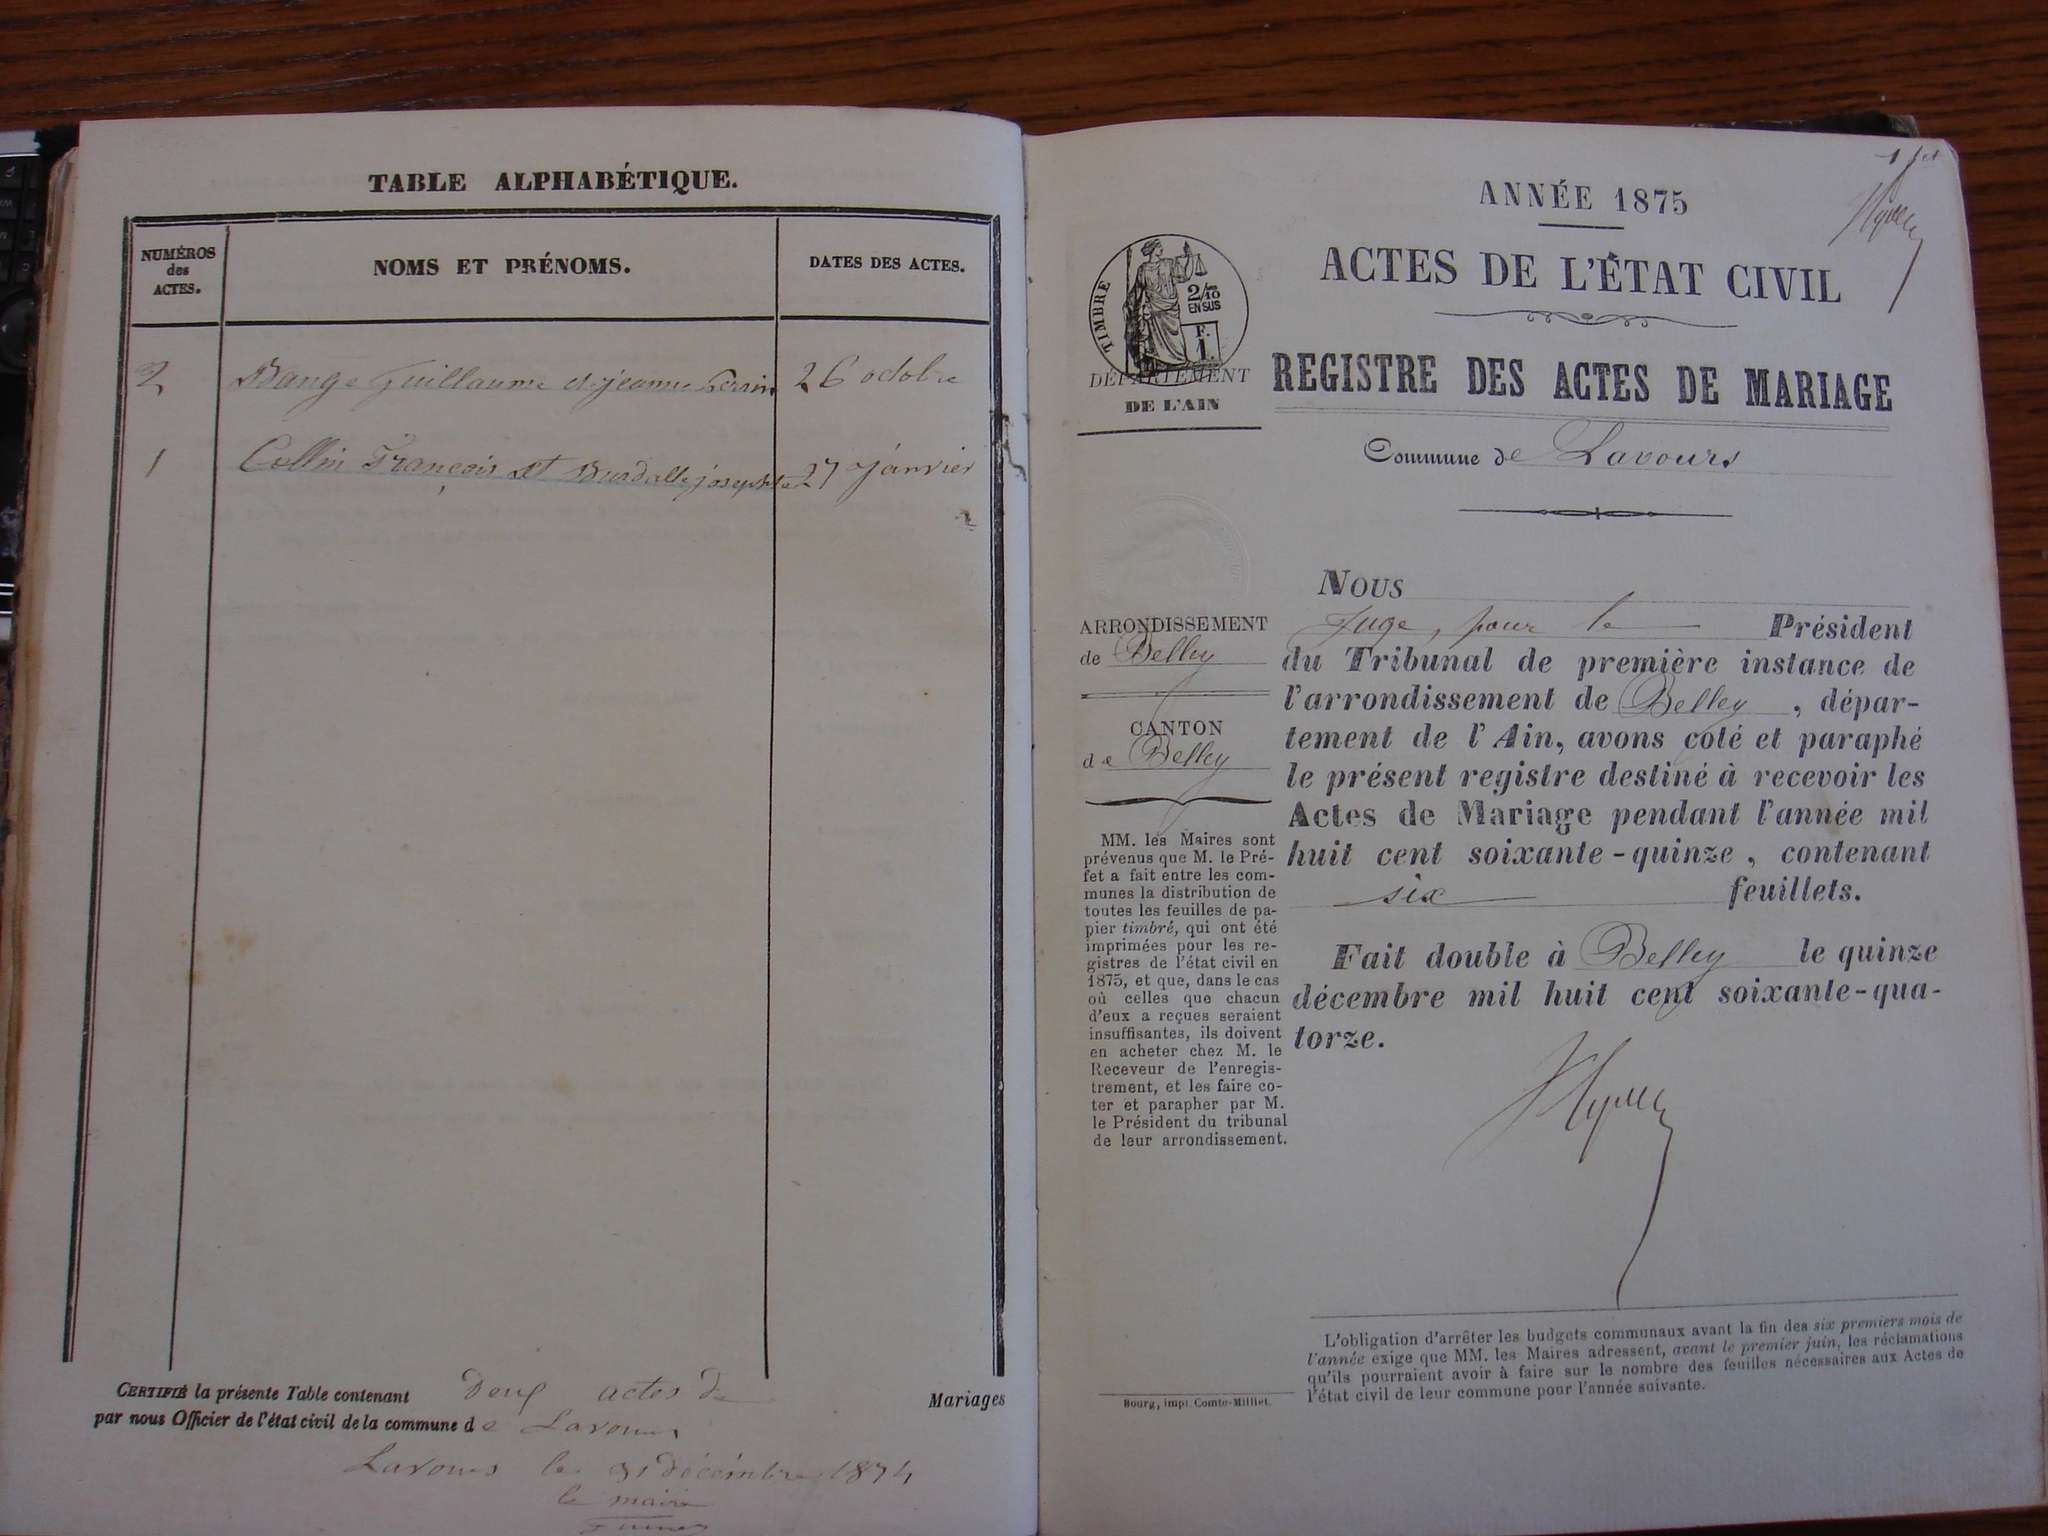 TABLE ALPHABÉTIQUE.
NUMÉROS
des
ACTES.
NOMS ET PRÉNOMS.
DATES DES ACTES.
2 Bange Guillaume et jeanne 26 octobre
1 Collin François et josephte 27 janvier
CERTIFIÉ la présente Table contenant Deux actes de Mariages
par nous Officier de l'état civil de la commune de Lavours
Lavours le 31 décembre 1874
le maire
ANNÉE 1875
ACTES DE L'ÉTAT CIVIL
TIMBRE
2/10
EN SUS
F.
1.
DÉPARTEMENT
DE L'AIN
REGISTRE DES ACTES DE MARIAGE
Commune de Lavours
ARRONDISSEMENT
de Belley
CANTON
de Belley
MM. les Maires sont
prévenus que M. le Pré-
fet a fait entre les com-
munes la distribution de
toutes les feuilles de pa-
pier timbré, qui ont été
imprimées pour les re-
gistres de l'état civil en
1875, et que, dans le cas
où celles que chacun
d'eux a reçues seraient
insuffisantes, ils doivent
en acheter chez M. le
Receveur de l'enregis-
trement, et les faire co-
ter et parapher par M.
le Président du tribunal
de leur arrondissement.
NOUS
Juge, pour le Président
du Tribunal de première instance de
l'arrondissement de Belley, dépar-
tement de l'Ain, avons coté et paraphé
le présent registre destiné à recevoir les
Actes de Mariage pendant l'année mil
huit cent soixante-quinze, contenant
six feuillets.
Fait double à Belley le quinze
décembre mil huit cent soixante-qua-
torze.
L'obligation d'arrêter les budgets communaux avant la fin des six premiers mois de
l'année exige que MM. les Maires adressent, avant le premier juin, les réclamations
qu'ils pourraient avoir à faire sur le nombre des feuilles nécessaires aux Actes de
l'état civil de leur commune pour l'année suivante.
Bourg, impr. Comte-Milliet.